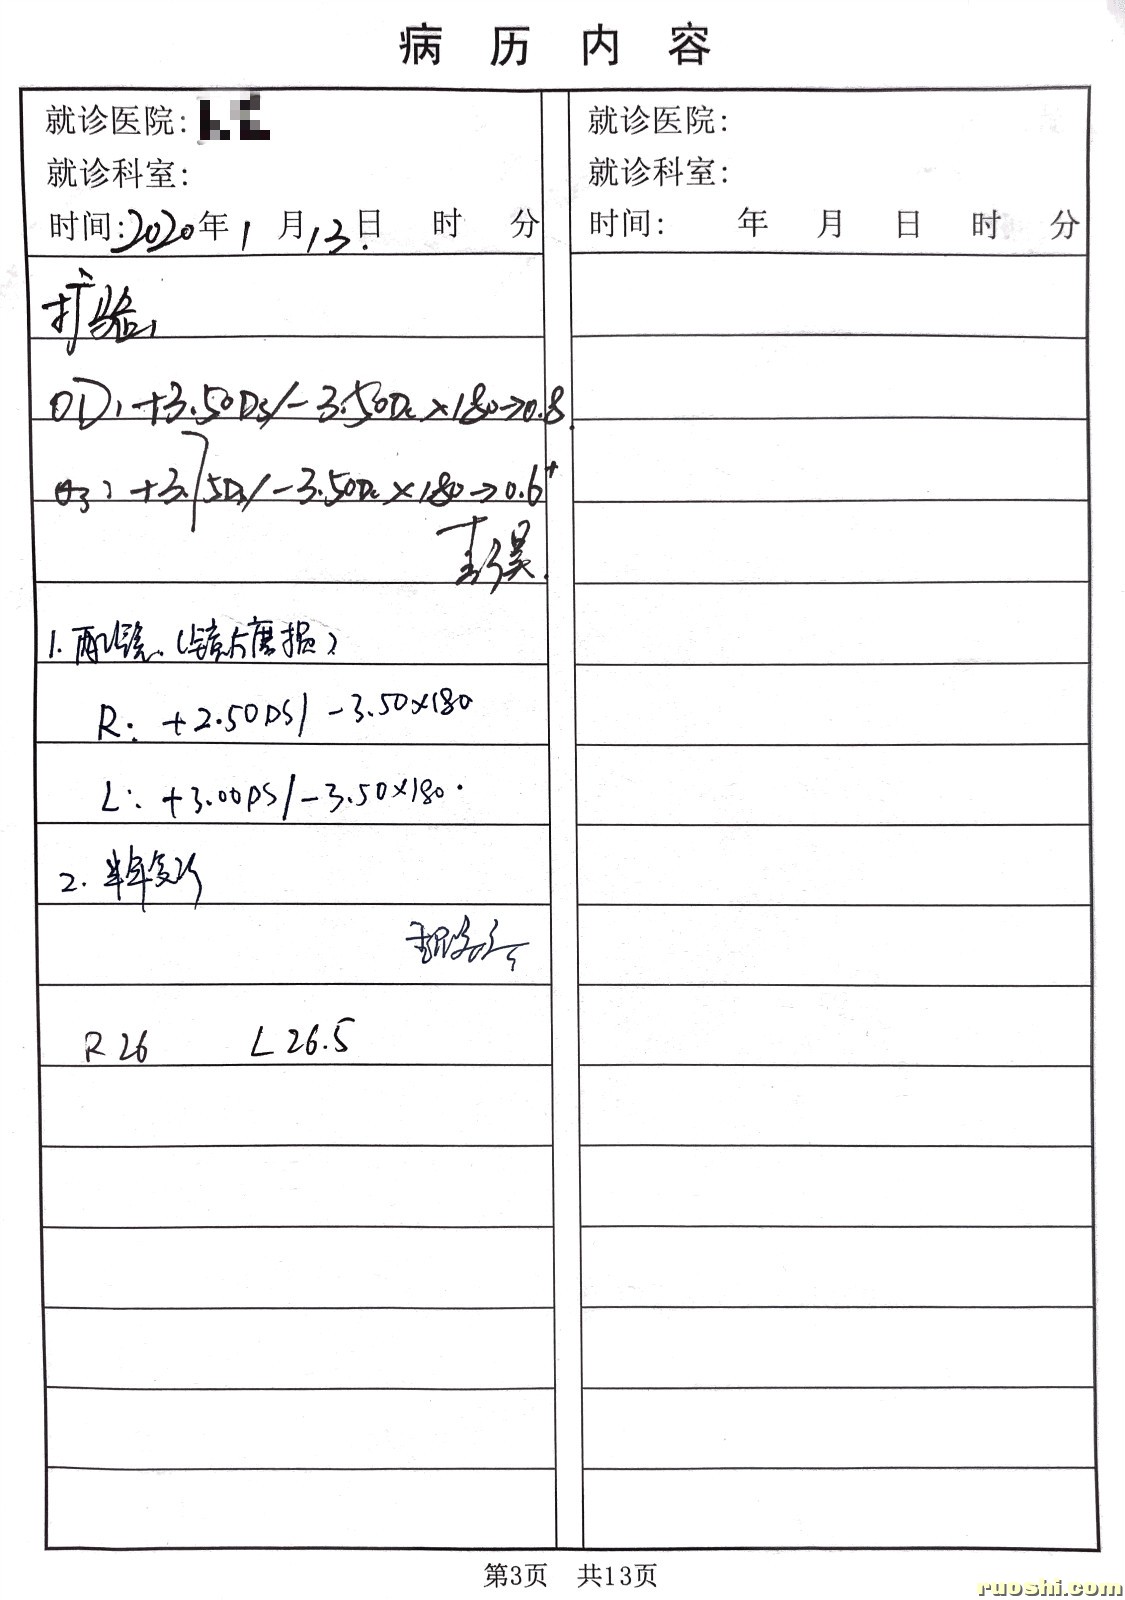 病 历 内 容
就诊医院:
就诊科室:
时间:2020年1月13日 时 分
扩验:
OD: +3.50DS/-3.50DC×180→0.8
OS: +3.75DS/-3.50DC×180→0.6⁺
1. 配镜.(镜片磨损)
R: +2.50DS/-3.50×180
L: +3.00DS/-3.50×180.
2. 半年复诊
R 26 L 26.5
就诊医院:
就诊科室:
时间: 年 月 日 时 分
第3页 共13页
ruoshi.com